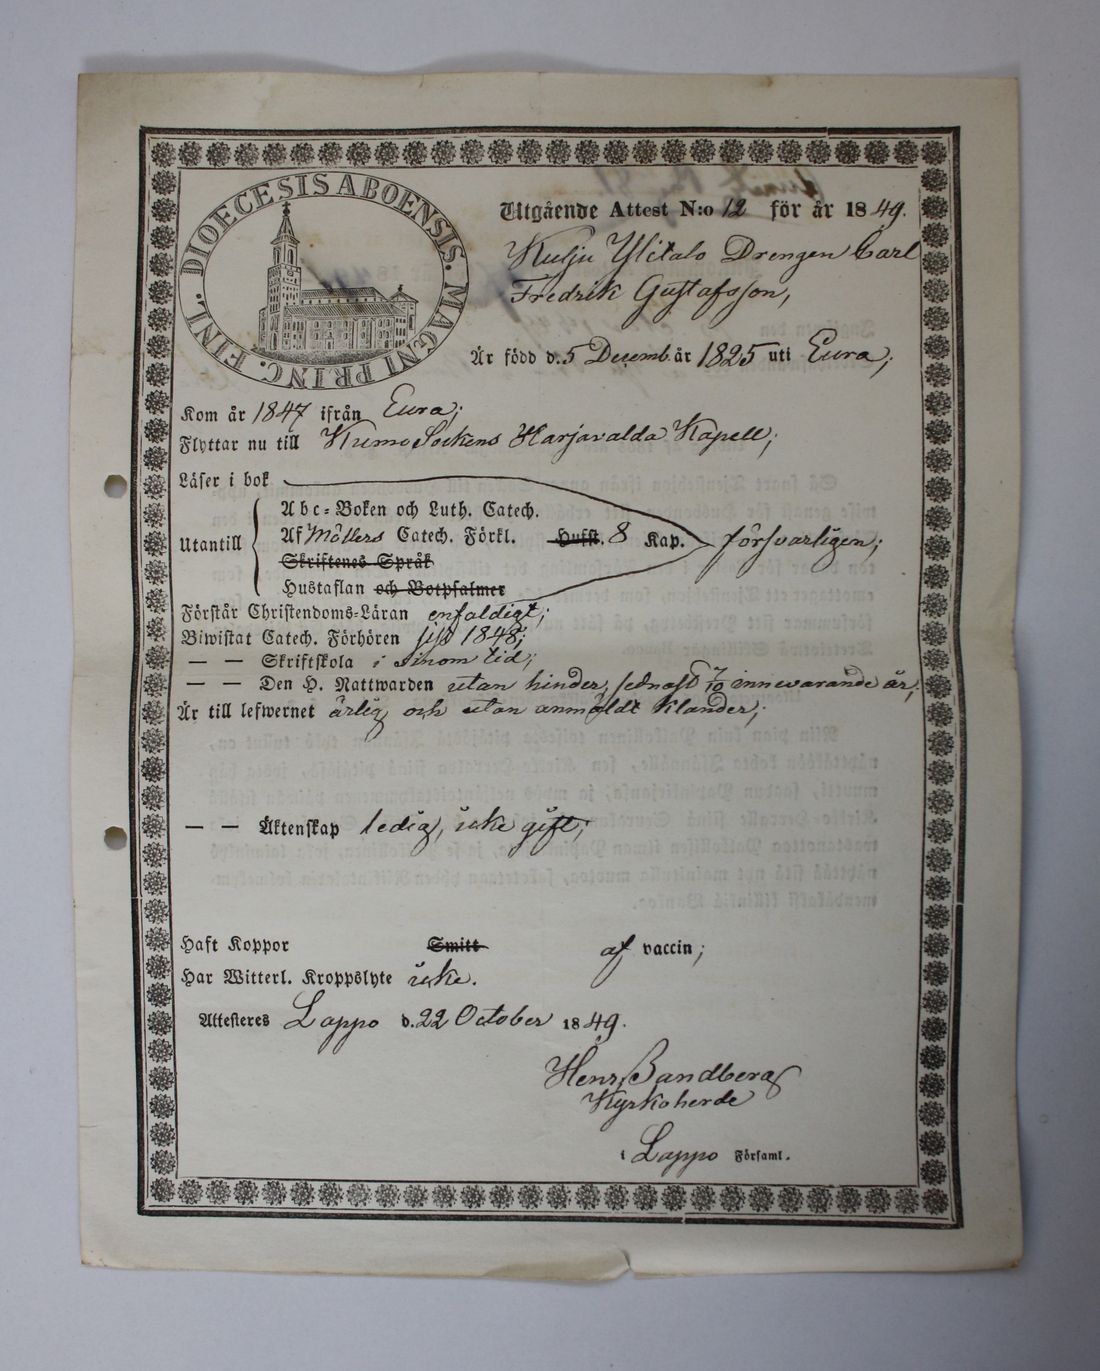 DIOECESIS ABOENSIS. MAGNI PRINC. FINL.
Utgående Attest N:o 12 för år 1849.
Kulju Ylitalo Drengen Carl
Fredrik Gustafsson,
Är född d. 5 Decemb. år 1825 uti Eura;
Kom år 1847 ifrån Eura;
Flyttar nu till Kumo Sockens Harjavalda Kapell;
Läser i bok
Abc-Boken och Luth. Catech.
Utantill Af Möllers Catech. Förkl. Hufst. 8 Kap. försvarligen;
Skriftenes Språk
Hustaflan och Botpsalmer
Förstår Christendoms-Läran enfaldigt;
Biwistat Catech. Förhören sist 1848;
— — Skriftskola i sinom tid;
— — Den H. Nattwarden utan hinder, sednast 7/10 innevarande år;
Är till lefwernet ärlig och utan anmäldt klander;
— — Äktenskap ledig, icke gift;
Haft Koppor Smitt af vaccin;
Har Witterl. Kroppslyte icke.
Attesteres Lappo d. 22 October 1849.
Henr Sandberg
Kyrkoherde
i Lappo Församl.